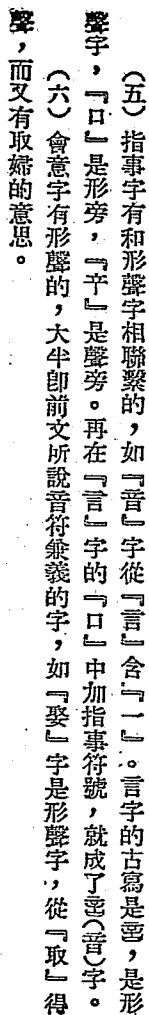 （五）指事字有和形聲字相聯繫的，如『音』字從『言』含『一』。言字的古寫是𠱫，是形
聲字，『口』是形旁，『䇂』是聲旁。再在『言』字的『口』中加指事符號，就成了（音）字。
（六）會意字有形聲的，大半卽前文所說音符兼義的字，如『娶』字是形聲字，從『取』得
聲，而又有取婦的意思。